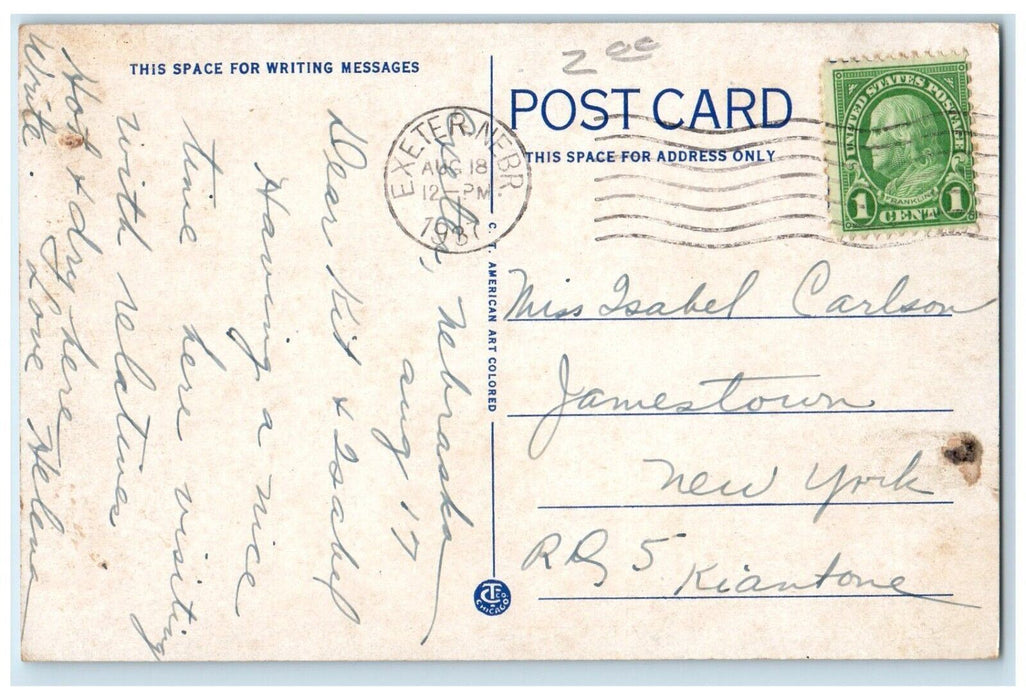 THIS SPACE FOR WRITING MESSAGES
Exeter, Nebraska
Aug 17
Dear Kit & Isabel
Having a nice
time here visiting
with relatives
Hot & dry here
Write. Love Helena
C. T. AMERICAN ART COLORED
CT CO
CHICAGO
2 00
POST CARD
THIS SPACE FOR ADDRESS ONLY
EXETER NEBR
AUG 18
12-PM
1937
UNITED STATES POSTAGE
FRANKLIN
1 CENT 1
Miss Isabel Carlson
Jamestown
New York
RD 5 Kiantone